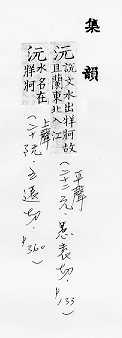 集韻
沅
說文水出牂牁故
且蘭東北入江
(平聲
二十二元.愚袁切.
P133)
沅
水名在
牂牁
(上聲
二十阮.五遠切.
P360)